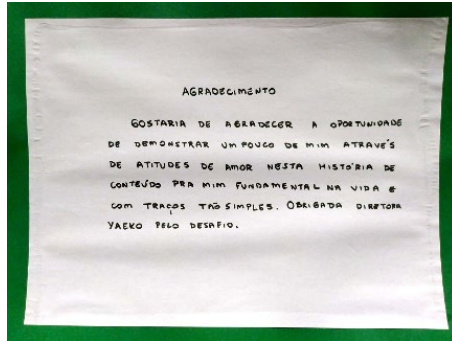 AGRADECIMENTO
GOSTARIA DE AGRADECER A OPORTUNIDADE
DE DEMONSTRAR UM POUCO DE MIM ATRAVÉS
DE ATITUDES DE AMOR NESTA HISTÓRIA DE
CONTEÚDO PRA MIM FUNDAMENTAL NA VIDA E
COM TRAÇOS TÃO SIMPLES. OBRIGADA DIRETORA
YAEKO PELO DESAFIO.